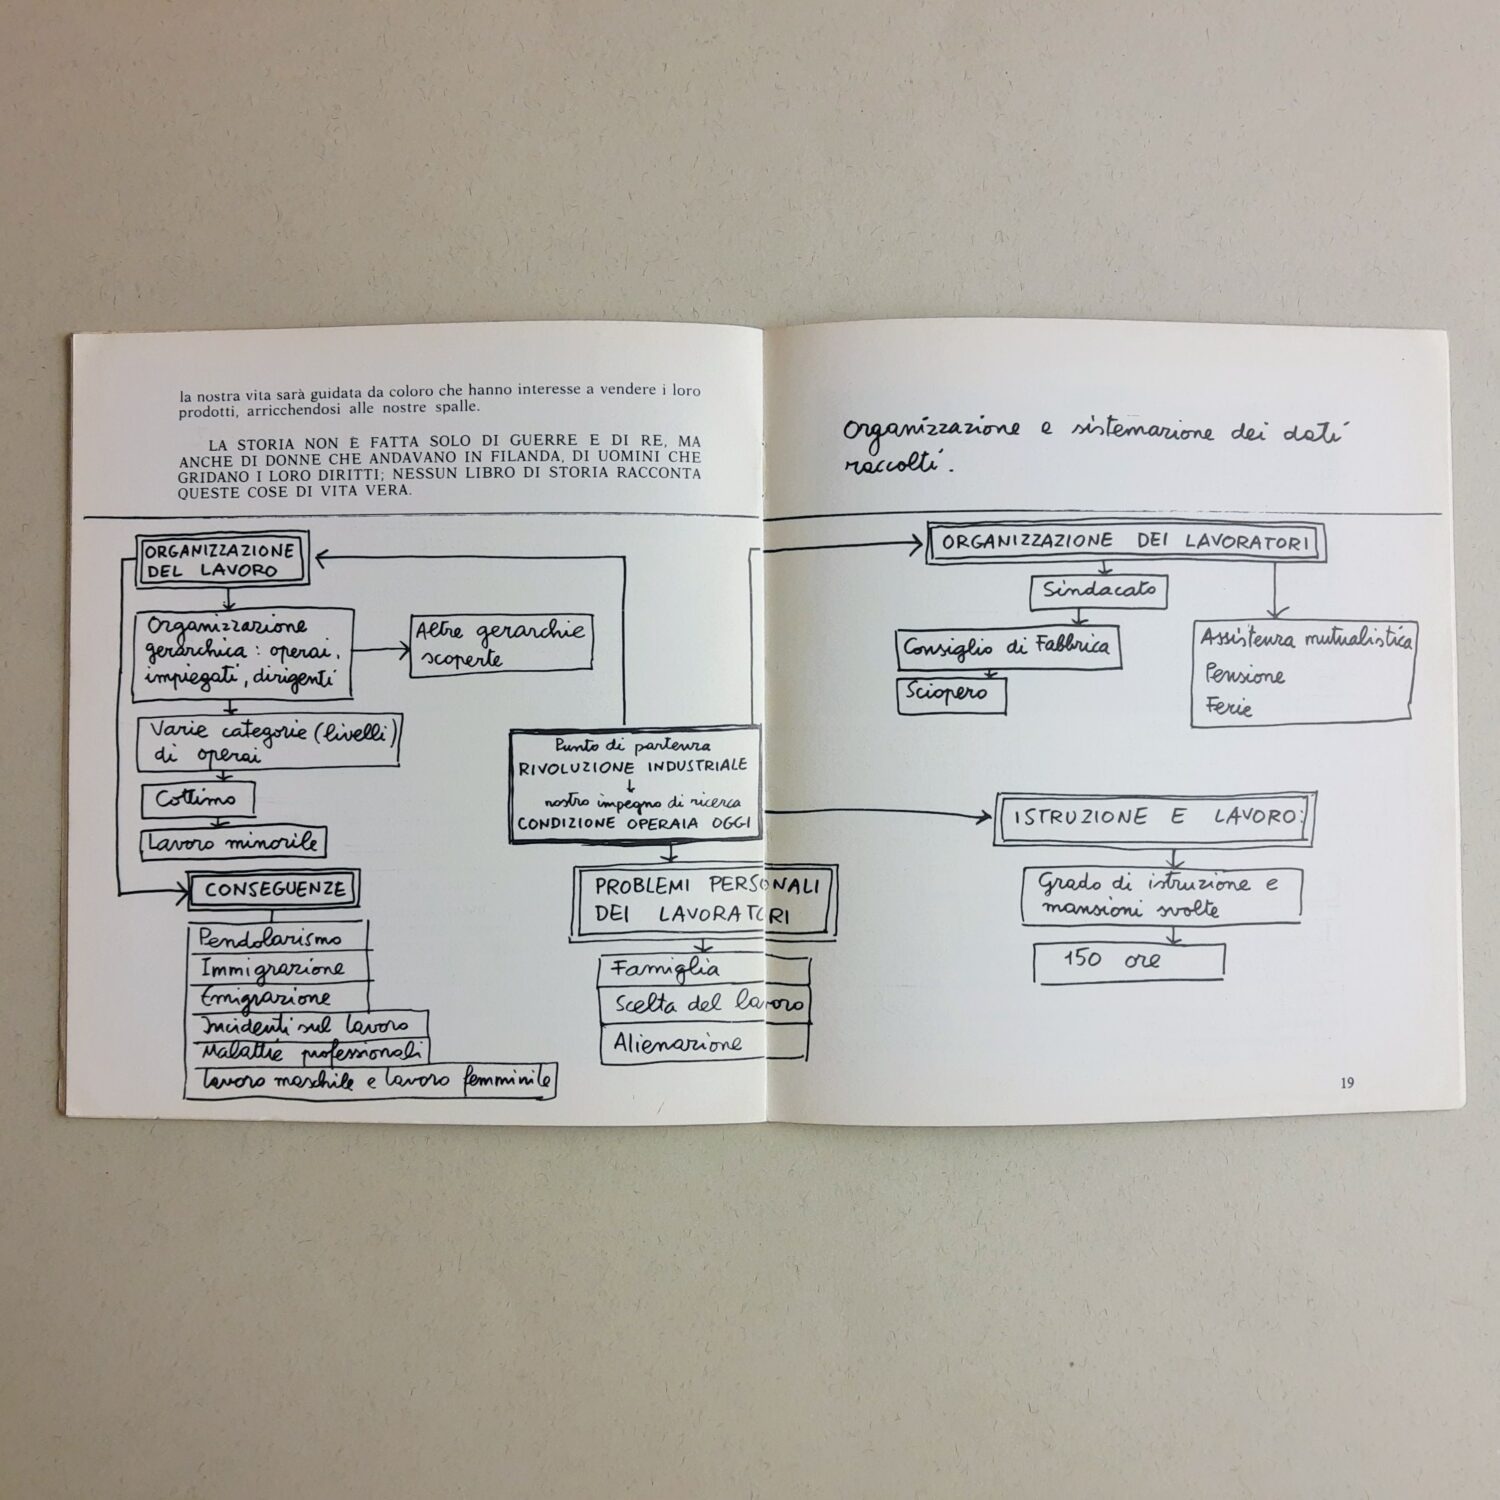 la nostra vita sarà guidata da coloro che hanno interesse a vendere i loro
prodotti, arricchendosi alle nostre spalle.
LA STORIA NON È FATTA SOLO DI GUERRE E DI RE, MA
ANCHE DI DONNE CHE ANDAVANO IN FILANDA, DI UOMINI CHE
GRIDANO I LORO DIRITTI; NESSUN LIBRO DI STORIA RACCONTA
QUESTE COSE DI VITA VERA.
ORGANIZZAZIONE
DEL LAVORO
Organizzazione
gerarchica: operai,
impiegati, dirigenti
Altre gerarchie
scoperte
Varie categorie (livelli)
di operai
Cottimo
Lavoro minorile
CONSEGUENZE
Pendolarismo
Immigrazione
Emigrazione
Incidenti sul lavoro
Malattie professionali
lavoro maschile e lavoro femminile
Punto di partenza
RIVOLUZIONE INDUSTRIALE
nostro impegno di ricerca
CONDIZIONE OPERAIA OGGI
PROBLEMI PERSONALI
DEI LAVORATORI
Famiglia
Scelta del lavoro
Alienazione
Organizzazione e sistemazione dei dati
raccolti.
ORGANIZZAZIONE DEI LAVORATORI
Sindacato
Consiglio di Fabbrica
Sciopero
Assistenza mutualistica
Pensione
Ferie
ISTRUZIONE E LAVORO:
Grado di istruzione e
mansioni svolte
150 ore
19